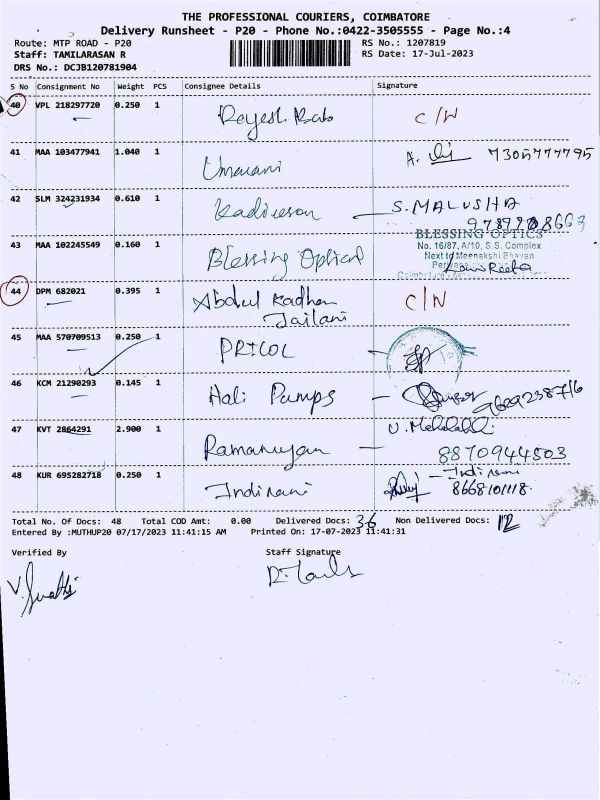 THE PROFESSIONAL COURIERS, COIMBATORE
Delivery Runsheet - P20 - Phone No.:0422-3505555 - Page No.:4
Route: MTP ROAD - P20 RS No.: 1207819
Staff: TAMILARASAN R RS Date: 17-Jul-2023
DRS No.: DCJB120781904
S No Consignment No Weight PCS Consignee Details Signature
40 VPL 218297720 0.250 1 C/N
41 MAA 103477941 1.040 1 Umarani A. 7305777795
42 SLM 324231934 0.610 1 Kadiresan S. MALUSHA
43 MAA 102245549 0.160 1 Blessing Optical BLESSING OPTICS
No. 16/87, A/10, S.S. Complex
Next to Meenakshi Bhavan
44 DPM 682021 0.395 1 Abdul Kadhar C/N
Jailani
45 MAA 570709513 0.250 1 PRICOL
46 KCM 21290293 0.145 1 Hali Pumps
47 KVT 2864291 2.900 1 Ramanujan 8870944503
48 KUR 695282718 0.250 1 Indirani Indirani
8668101118
Total No. Of Docs: 48 Total COD Amt: 0.00 Delivered Docs: 36 Non Delivered Docs: 12
Entered By :MUTHUP20 07/17/2023 11:41:15 AM Printed On: 17-07-2023 11:41:31
Verified By Staff Signature